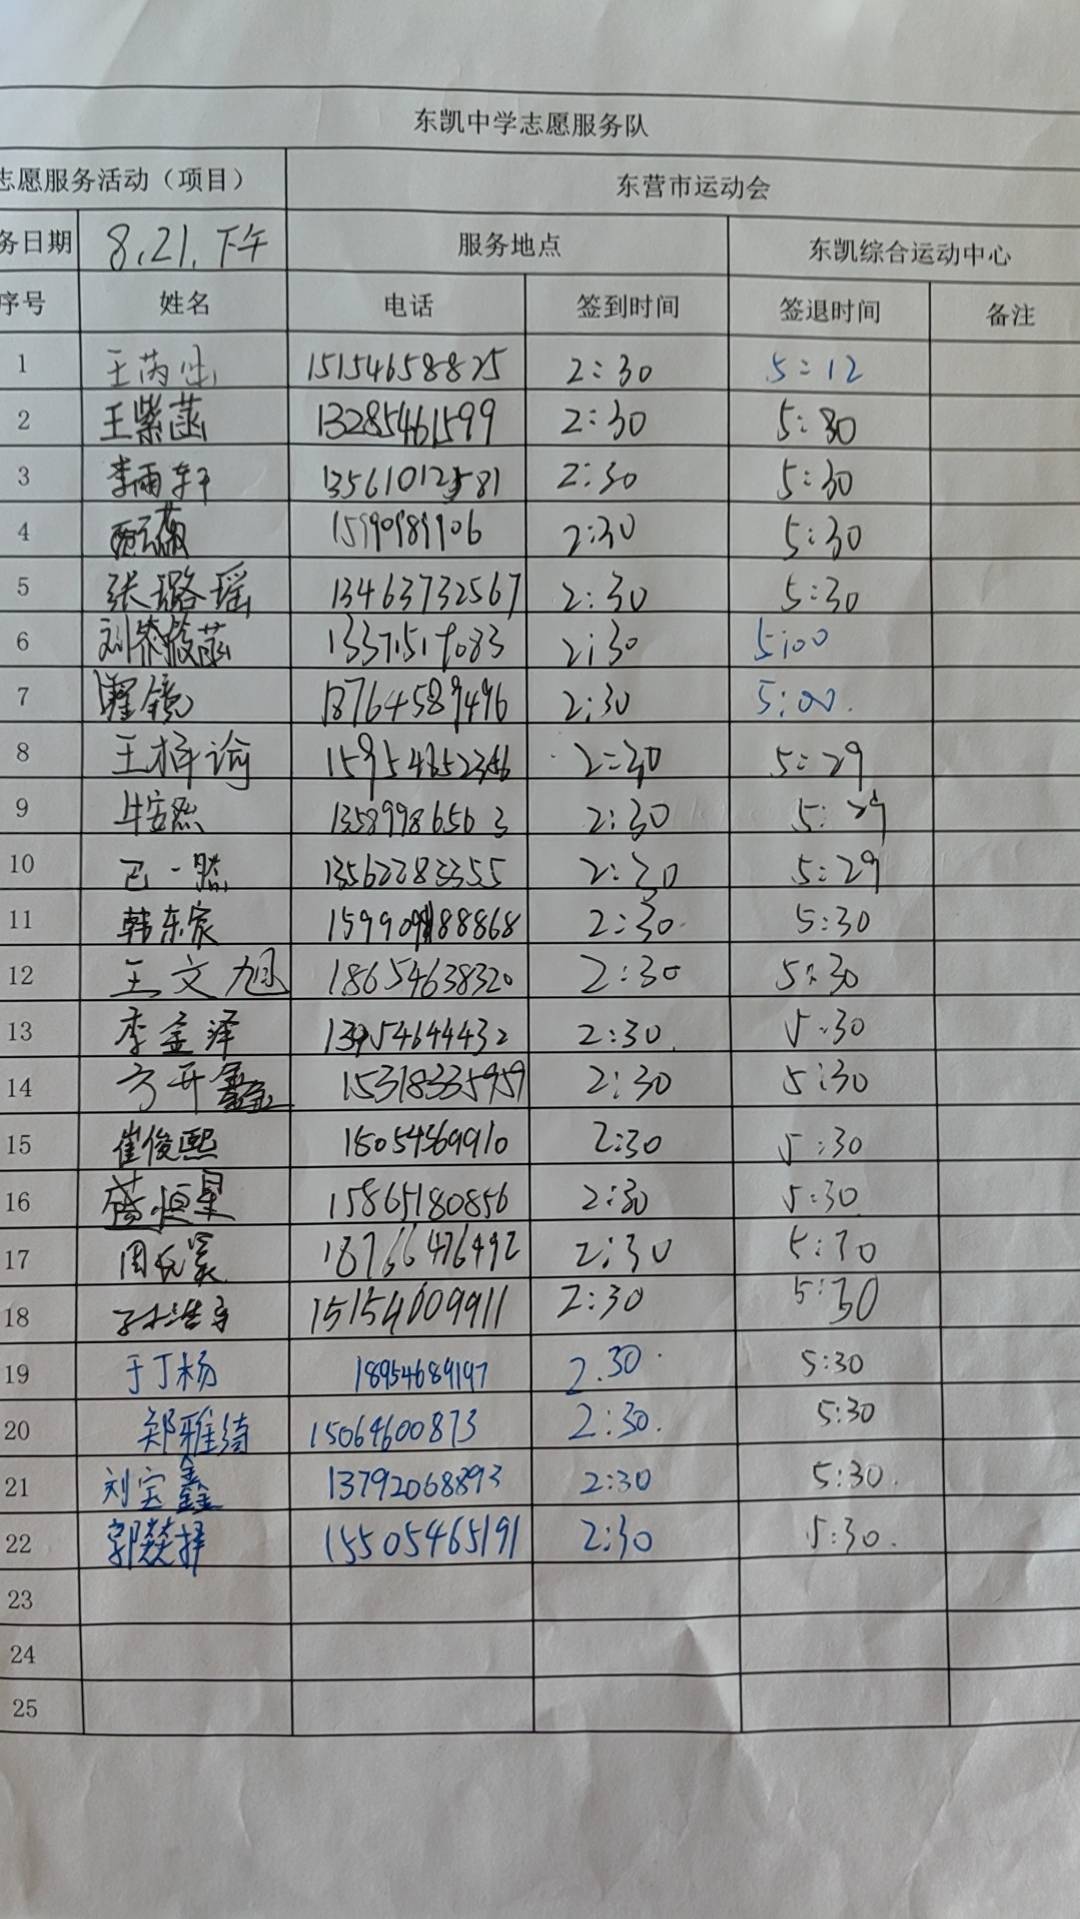 东凯中学志愿服务队
志愿服务活动（项目） 东营市运动会
务日期 8.21.下午 服务地点 东凯综合运动中心
序号 姓名 电话 签到时间 签退时间 备注
1 王芮 15154658825 2:30 5:12
2 王紫菡 13285461599 2:30 5:30
3 李雨轩 13561012581 2:30 5:30
4 15990989906 2:30 5:30
5 张璐瑶 13463732567 2:30 5:30
6 刘 菡 2:30 5:00
7 翟镜 18764589496 2:30 5:00.
8 王梓谕 2:30 5:29
9 牛安然 13589986563 2:30 5:29
10 巴一然 13562283355 2:30 5:29
11 韩东宸 2:30 5:30
12 王文旭 18654638320 2:30 5:30
13 李孟泽 13954644432 2:30 5:30
14 方开鑫 15318335959 2:30 5:30
15 崔俊熙 15054569910 2:30 5:30
16 恒星 15865180856 2:30 5:30
17 周 昊 18766476492 2:30 5:30
18 孙浩宇 15154009911 2:30 5:30
19 于丁杨 18954689197 2.30 5:30
20 郑雅绮 15064600873 2:30. 5:30
21 刘宝鑫 13792068893 2:30 5:30.
22 郭燚择 15505465191 2:30 5:30.
23
24
25